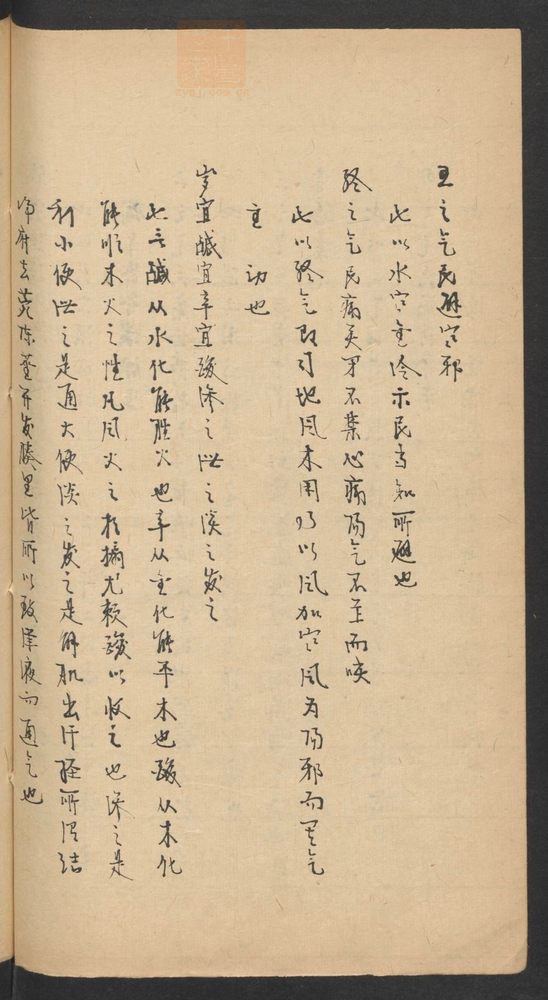 五之气民避寒邪
此以水寒金冷示民当知所避也
终之气民病关闭不禁心痛阳气不至而咳
此以终气即司地风木用乃以风加寒风为阳邪而其气
主动也
岁宜鹹宜辛宜酸渗之泄之渍之发之
此言鹹从水化能胜火也辛从金化能平木也酸从木化
能顺木火之性凡风火之相搧尤赖酸以收之也渗之是
利小便泄之是通大便渍之发之是解肌出汗经所谓洁
净府去菀陈莝开发腠理皆所以致津液而通气也